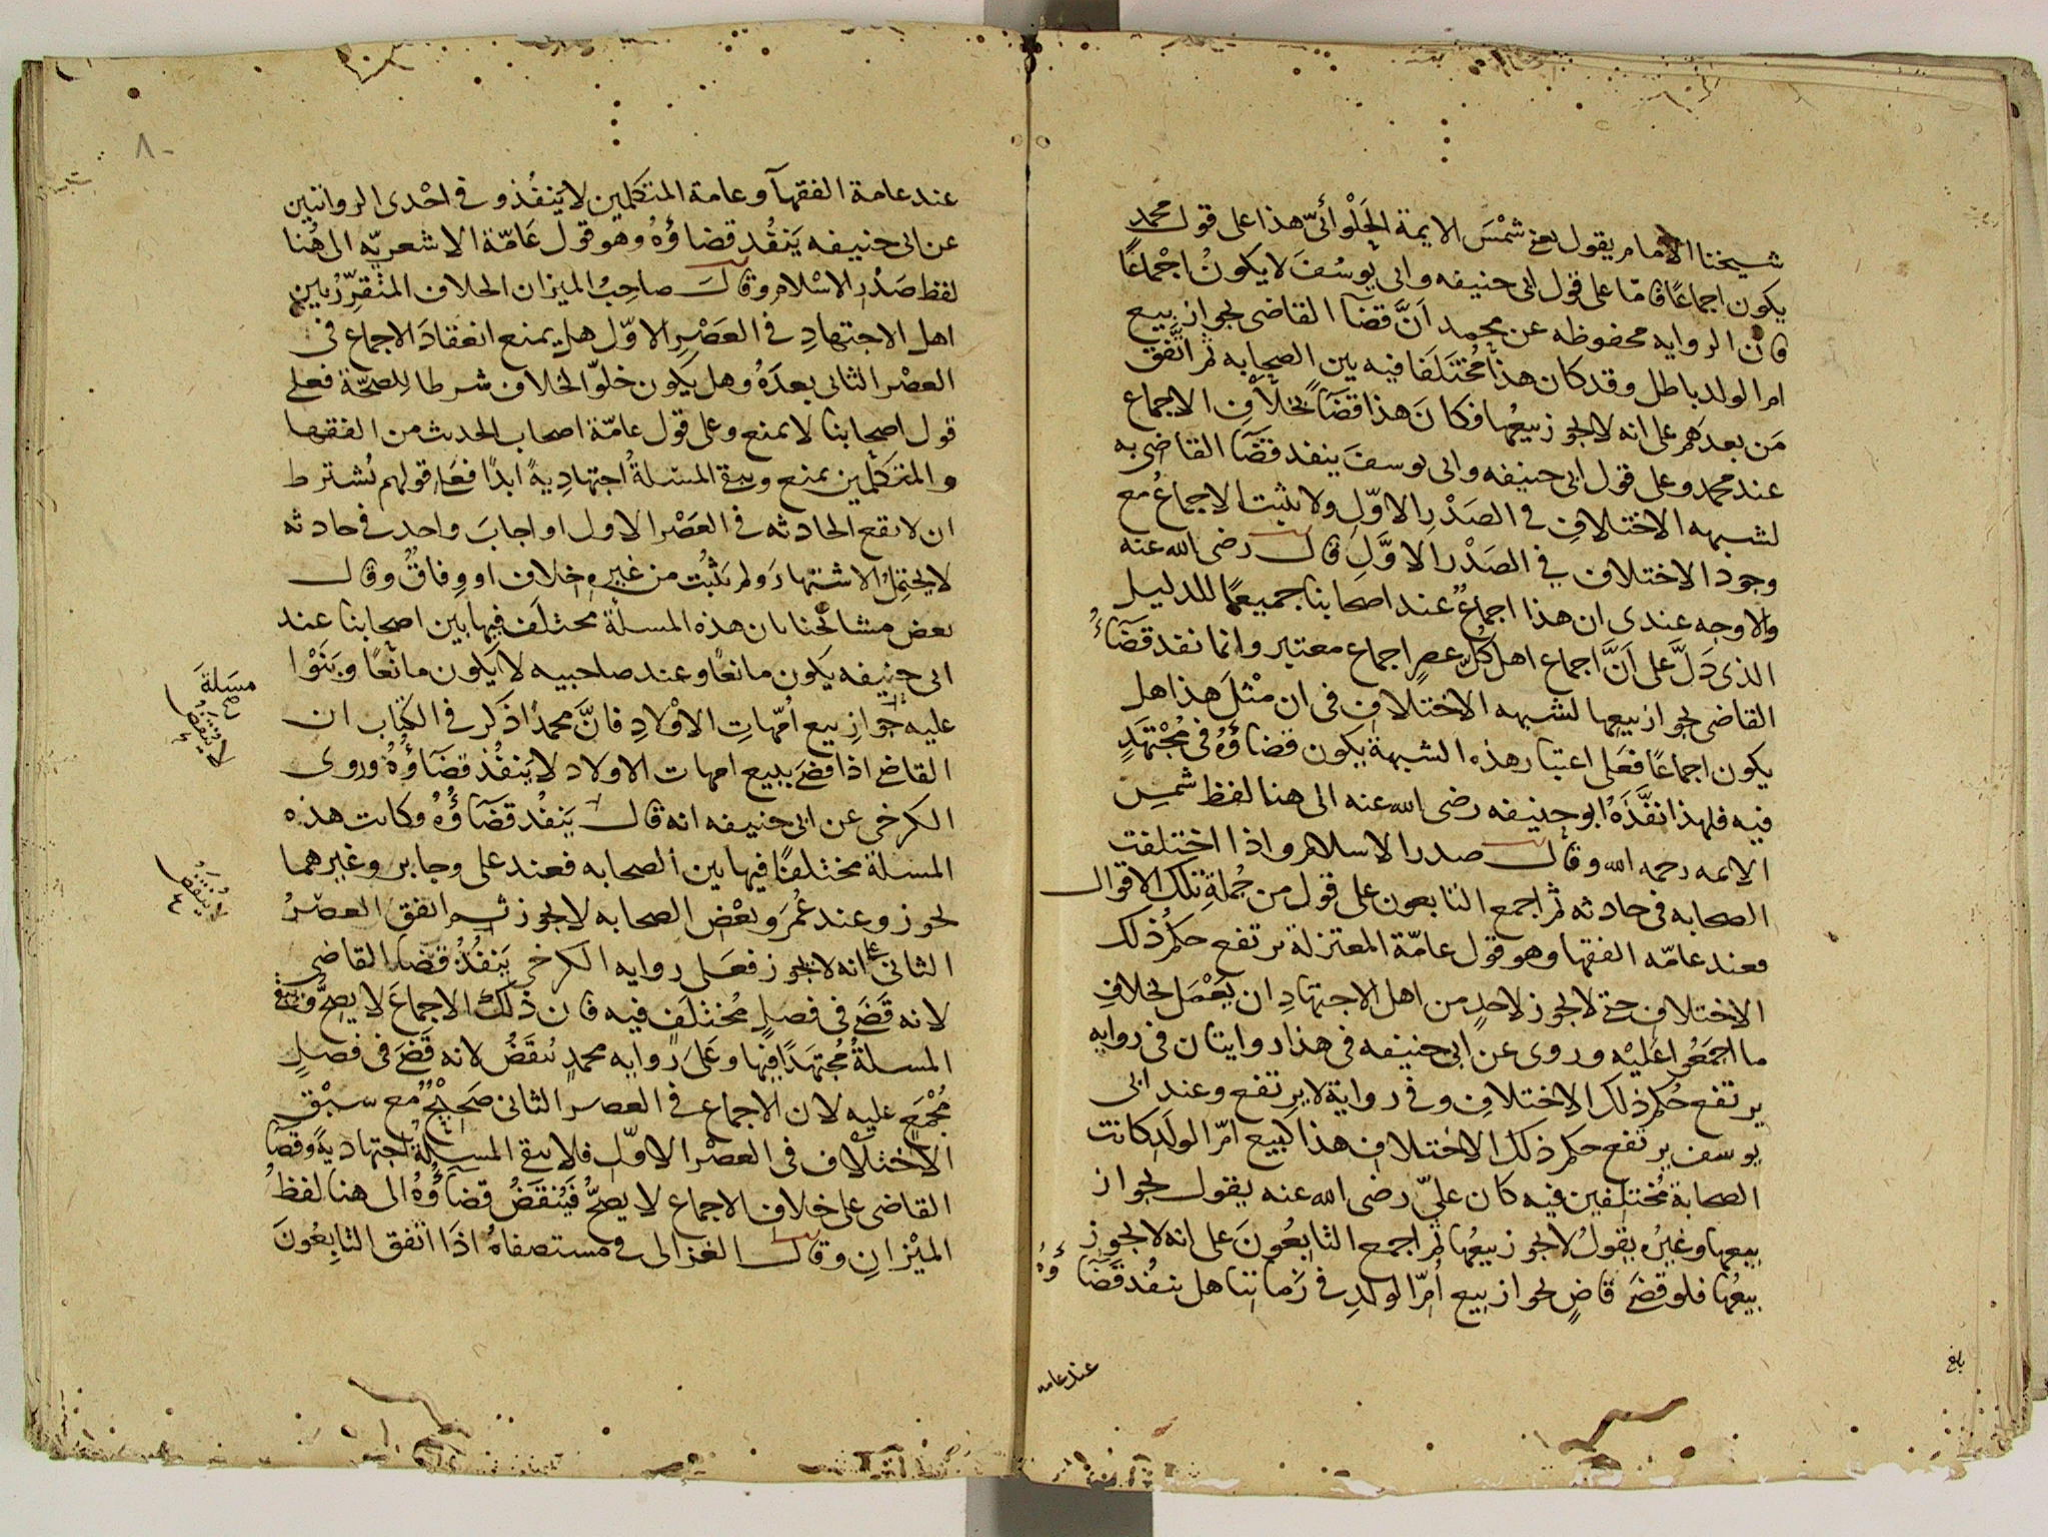 شيخنا الامام يقول يعني شَمْسَ الايمة الحَلْوائىّ هذا على قول محمد
يكون اجماعًا فامّا على قول ابى حنيفه وابى يوسُفَ لا يكونُ اجْماعًا
فان الروايه محفوظه عن محمد اَنَّ قضآ القاضى بجواز بيع
ام الولد باطل وقد كان هذا مُختَلَفا فيه بين الصحابه ثم اتَّفق
مَن بعدَهم على انه لا يجوز بيعُها فكانَ هذا قضآً بخلاف الاجماع
عند محمد وعلى قول ابى حنيفه وابى يوسفَ ينفد قضَآ القاضى به
لشبهه الاختلافِ في الصَدْرِ الاوّلِ ولا يثبت الاجماعُ مع
وجود الاختلاف في الصَدْر الاوَّلِ قال رضى الله عنه
والاوجه عندى ان هذا اجماعٌ عند اصحابنا جميعًا للدليل
الذى دَلَّ على اَنَّ اجماع اهل كلّ عصرٍ اجماع معتبر وانما نفد قضَآءُ
القاضى بجواز بيعها لشبهه الاختلافِ فى ان مْثلَ هذا هل
يكون اجماعًا فعَلى اعتبار هذه الشبهةِ يكون قضاؤُهُ فى مُجْتَهَدٍ
فيه فلهذا نفَّذَهُ ابو حنيفه رضى الله عنه الى هنا لفظ شمسِ
الايمه رحمه الله وقال صدر الاسلام واذا اختلفت
الصحابه فى حادثه ثم اجمع التابعون على قول من جُملةِ تلك الاقوال
فعند عامّه الفقها وهو قول عامّة المعتزلة يرتفع حكمُ ذلك
الاختلافِ حتى لا يجوز لاحدٍ من اهل الاجتهادِ ان يَعْمَل بخلافِ
ما اجمَعُوا عَليْه وروى عن ابى حنيفه فى هذا روايتان فى روايه
يرتفع حُكم ذلك الاختلافِ وفى روايةٍ لا يرتفع وعند ابى
يوسف يرتفع حكم ذلك الاختلاف هذا كبيع امّ الولَد كانت
الصحابةُ مُختلِفين فيه كان علىّ رضى الله عنه يقول بجواز
بيعِها وغيرُه يقولُ لا يجوز بيعُها ثم اجمع التابعُونَ على انه لا يجوز
بيعُها فلو قضَى قاضٍ بجواز بيع اُمّ الولدِ فى زَماننا هل ينفُد قضَآؤهُ
عند عامه
بلغ
٨٠
عند عامة الفقهآ وعامة المتكلمين لا يَنفُذ وفى احْدى الروايتين
عن ابى حنيفه يَنفُد قضاؤُهُ وهو قول عَامّة الاشعريّه الى هُنا
لفظ صَدْر الاسْلام وقالَ صاحِبُ الميزان الخلاف المتقرِّرُ بين
اهل الاجتهادِ فى العَصْرِ الاوّل هل يمنع انعقادَ الاجماع فى
العصْر الثانى بعدَهُ وهل يكون خلوّ الخلاف شرطا للصحّة فعلى
قول اصحابنا لا يمنع وعلى قول عامّة اصحاب الحديث من الفقها
والمتكلّمين يمنع ويبقى المسَلةُ اجتهادِيةً ابدًا فعَلى قولهم يُشترط
ان لا تقع الحادثه فى العَصْر الاول او اجابَ واحد فى حادثه
لا يحتمِلُ الاشتهارَ ولم يَثبُت من غيره خِلاف او وِفاقٌ وقال
بعض مشائخنا بان هذه المسلة مختلَف فيها بين اصحابنا عند
ابى حنيفه يكون مانعًا وعند صاحبيه لا يكون مانعًا وبَنَوْا
عليه جوازِ بيع اُمّهاتِ الاوْلادِ فانَّ محمدًا ذكر فى الكتاب ان
القاضى اذا قضَى ببيع امهات الاولاد لا يَنفُذ قضَآؤُهُ وروى
الكرخى عن ابى حنيفه انه قال يَنفُد قضَآؤُهُ وكانت هذه
المسلة مختلفًا فيها بين الصحابه فعند على وجابر وغيرهما
يجوز وعند عُمَرَ وبعْضِ الصحابه لا يجوز ثم اتفقَ العصْرُ
الثانى على انه لا يجوز فعَلى روايه الكرخى يَنفُذُ قضآ القاضى
لانه قَضَى فى فصلٍ مُختلَف فيه فان ذلك الاجماعَ لا يصحُّ وتبقى
المسلةُ مُجتهَدًا فيها وعَلى روايه محمدٍ يُنقَضُ لانه قَضَى فى فصلٍ
مُجْمَعٍ عليه لان الاجماع فى العصر الثانى صَحِيْحٌ مع سبْقِ
الاختلاف فى العصْر الاوّل فلا يبقى المسلةُ اجتهاديةً وقضآ
القاضى على خلاف الاجماع لا يصحُّ فيُنقَضُ قضآؤُهُ الى هنا لفظُ
الميْزانِ وقال الغزالى فى مستصفاهُ اذَا اتّفق التابِعُونَ
مسَلةَ
صح
لا يُنتقَض
يُنتقَض